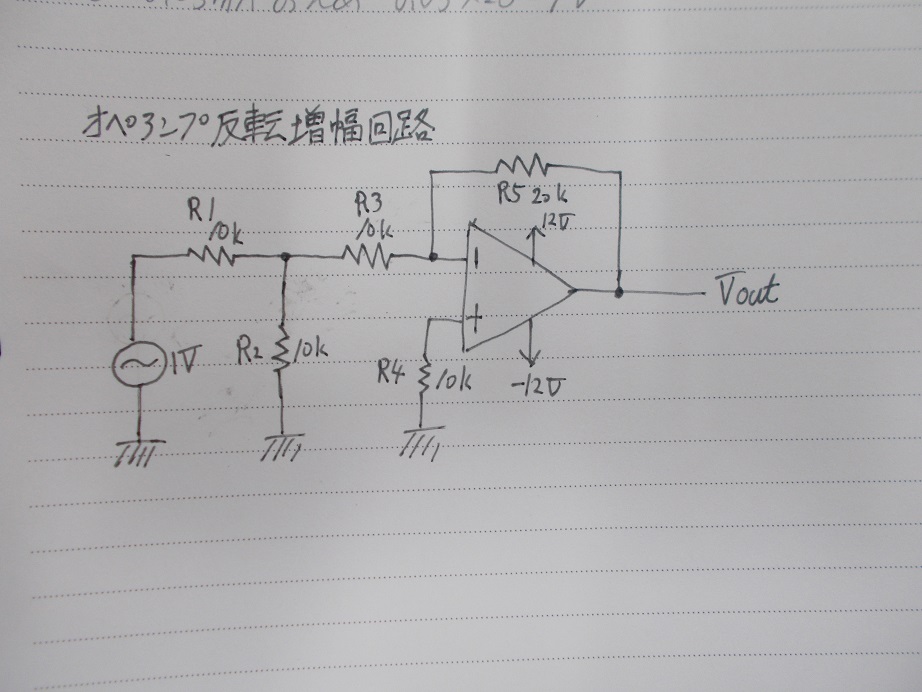 オペアンプ反転増幅回路
R1
10k
R3
10k
R5 20k
12V
1V
R2
10k
R4
10k
-12V
Vout